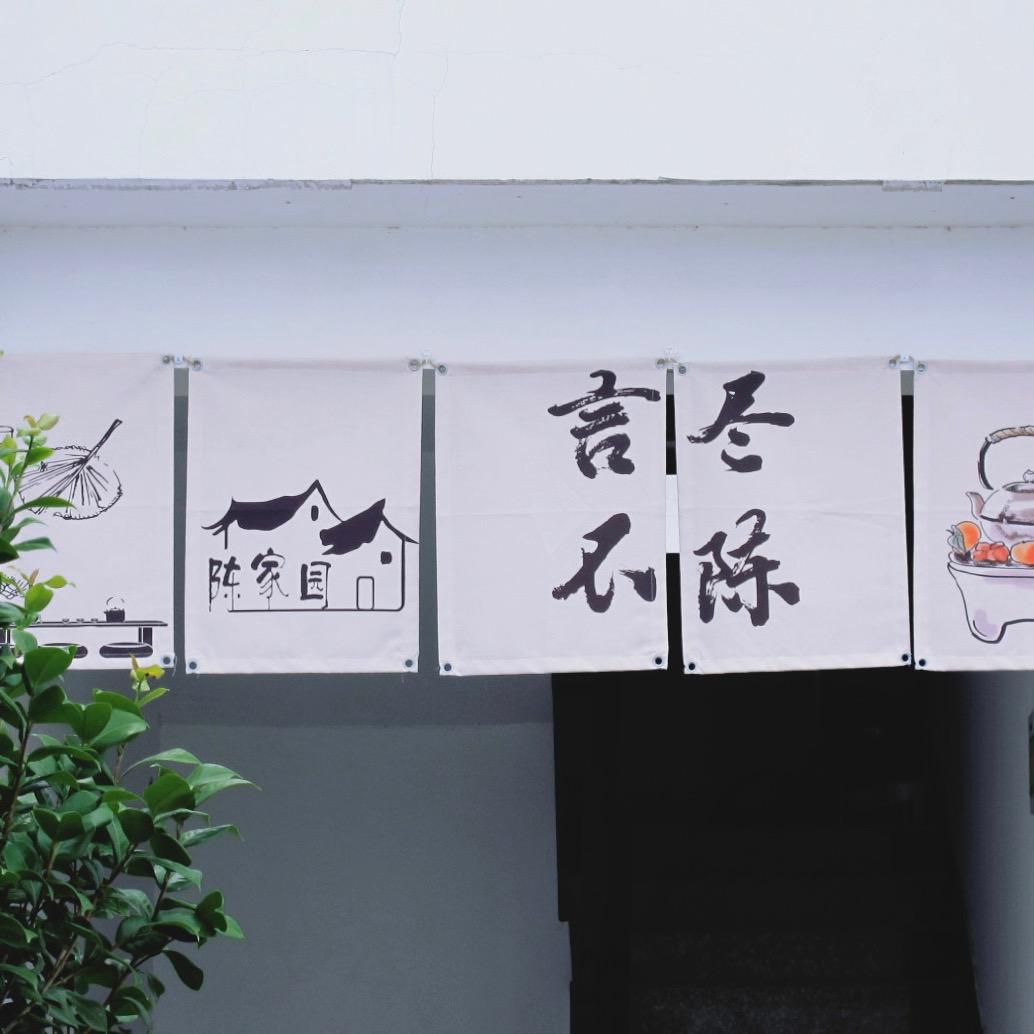 陈家园
言不
尽陈